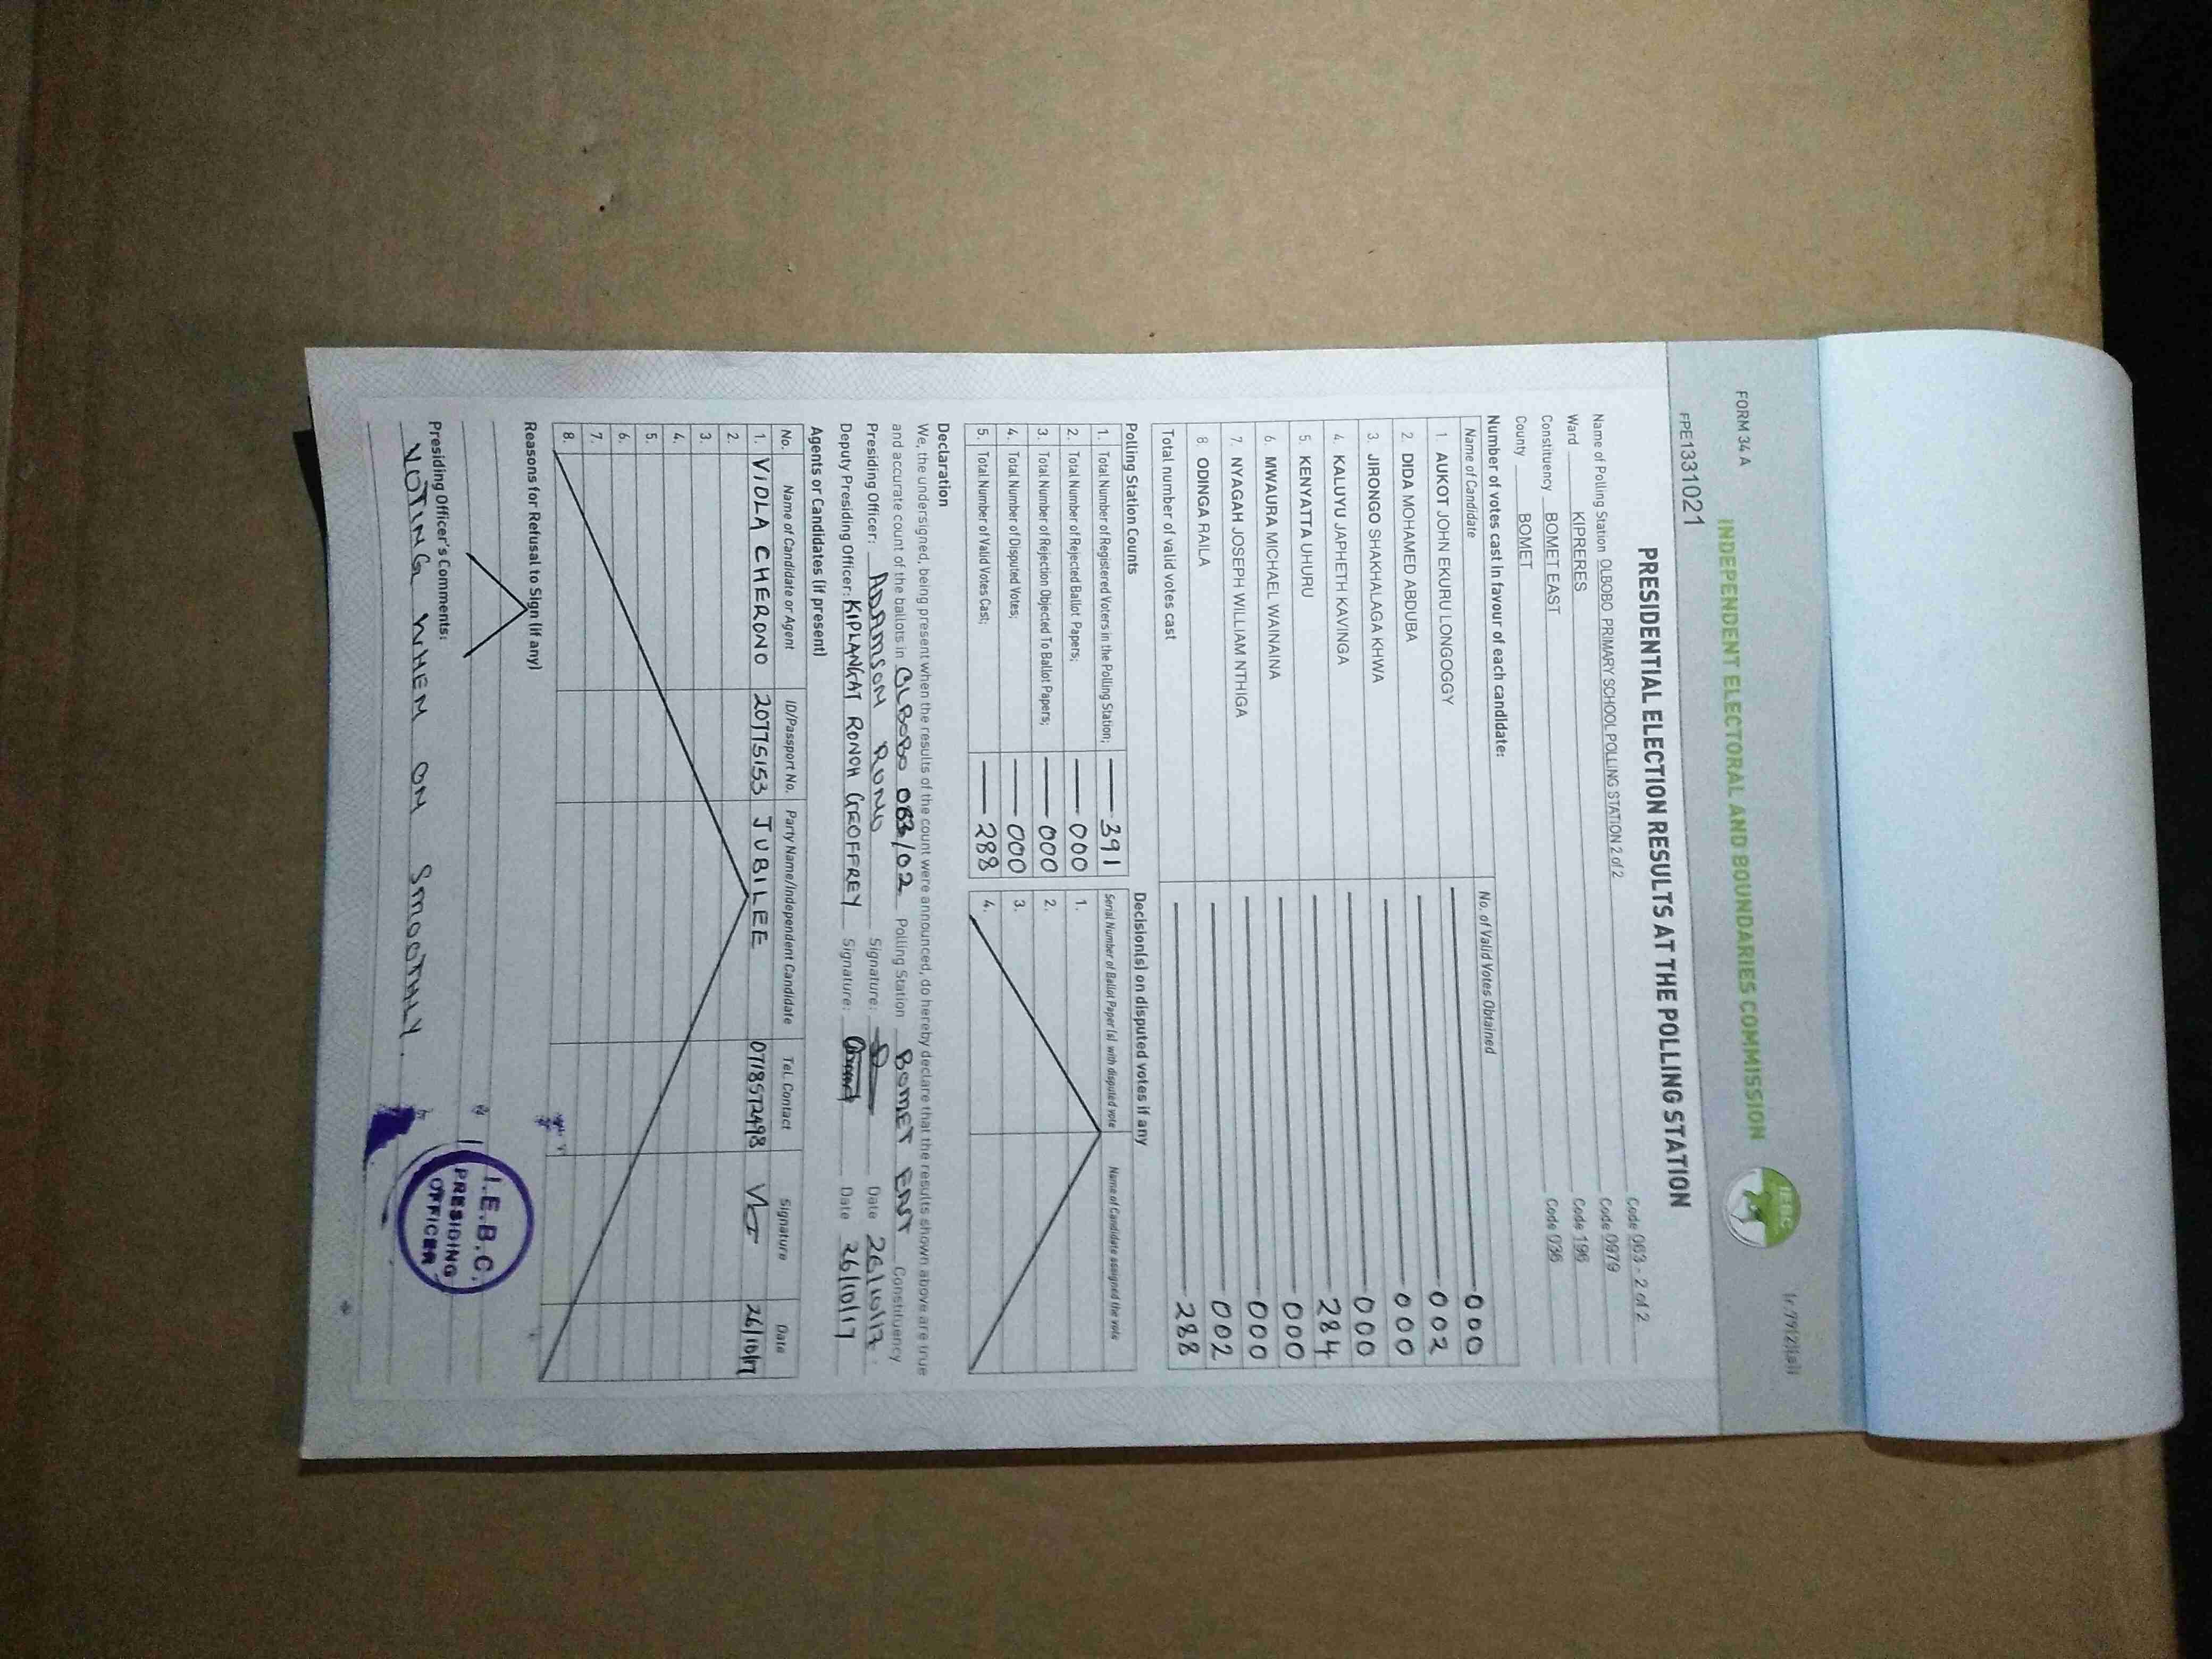 FORM 34 A
INDEPENDENT ELECTORAL AND BOUNDARIES COMMISSION
IEBC
FPE1331021
PRESIDENTIAL ELECTION RESULTS AT THE POLLING STATION
Name of Polling Station OLBOBO PRIMARY SCHOOL POLLING STATION 2 of 2 Code 063 - 2 of 2
Ward KIPRERES Code 0979
Constituency BOMET EAST Code 196
County BOMET Code 036
Number of votes cast in favour of each candidate:
Name of Candidate No. of Valid Votes Obtained
1. AUKOT JOHN EKURU LONGOGGY 000
2. DIDA MOHAMED ABDUBA 002
3. JIRONGO SHAKHALAGA KHWA 000
4. KALUYU JAPHETH KAVINGA 000
5. KENYATTA UHURU 284
6. MWAURA MICHAEL WAINAINA 000
7. NYAGAH JOSEPH WILLIAM NTHIGA 000
8. ODINGA RAILA 002
Total number of valid votes cast 288
Polling Station Counts Decision(s) on disputed votes if any
1. Total Number of Registered Voters in the Polling Station; 391 Serial Number of Ballot Paper(s) with disputed vote Name of Candidate assigned the vote
2. Total Number of Rejected Ballot Papers; 000 1.
3. Total Number of Rejection Objected To Ballot Papers; 000 2.
4. Total Number of Disputed Votes; 000 3.
5. Total Number of Valid Votes Cast; 288 4.
Declaration
We, the undersigned, being present when the results of the count were announced, do hereby declare that the results shown above are true
and accurate count of the ballots in OLBOBO 063/02 Polling Station BOMET EAST Constituency
Presiding Officer: ADAMSON RONO Signature: Date 26/10/17
Deputy Presiding Officer: KIPLANGAT RONOH GEOFFREY Signature: Date 26/10/17
Agents or Candidates (if present)
No. Name of Candidate or Agent ID/Passport No. Party Name/Independent Candidate Tel. Contact Signature Date
1. VIOLA CHERONO 20775153 JUBILEE 0718572498 26/10/17
2.
3.
4.
5.
6.
7.
8.
Reasons for Refusal to Sign (if any)
Presiding Officer's Comments:
VOTING WHEN ON SMOOTHLY.
I.E.B.C.
PRESIDING
OFFICER